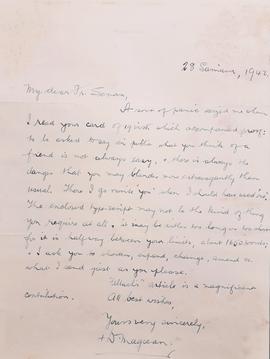 1942
My dear Fr. Senan,
A sense of panic seized me when
I read your card of which accompanied proof:
to be asked to say in public what you think of a
friend is not always easy, & there is always the
danger that you may blunder more extravagantly than
usual. Hope I go
The enclosed typescript may not be the kind of thing
you require at all, & it may be either too long or too short
for it is halfway between your limits, about words;
& I ask you to shorten, expand, change, amend or
what I send just as you please.
article is a magnificent
contribution.
All best wishes,
Yours very sincerely,